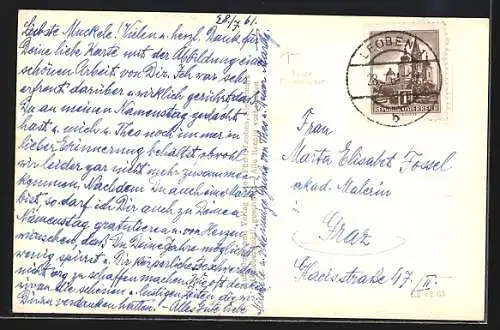 28./7. 61.
Liebste Muckele! Vielen u. herzl. Dank für
Deine liebe Karte mit der Abbildung einer
schönen Arbeit von Dir. Ich war sehr
erfreut darüber u. wirklich gerührt dass
Du an meinen Namenstag gedacht
hast u. mich u. Theo noch immer in
lieber Erinnerung behältst, obwohl
wir leider gar nicht mehr zusammen
kommen. Nachdem Du auch eine Marta
bist, so darf ich Dir auch zu Deinem
Namenstag gratulieren u. von Herzen
wünschen, daß Du Deine Jahre möglichst
wenig spürst u. Dir körperliche Beschwerden
nicht arg zu schaffen machen. Wie oft denken
wir an die schönen u. lustigen Zeiten, die wir
Dir zu verdanken hatten. - Alles Gute liebe
LEOBEN
b
REPUBLIK ÖSTERREICH
Frau
Marta Elisabet Fossel
akad. Malerin
Graz
Körösistraße 47/II.